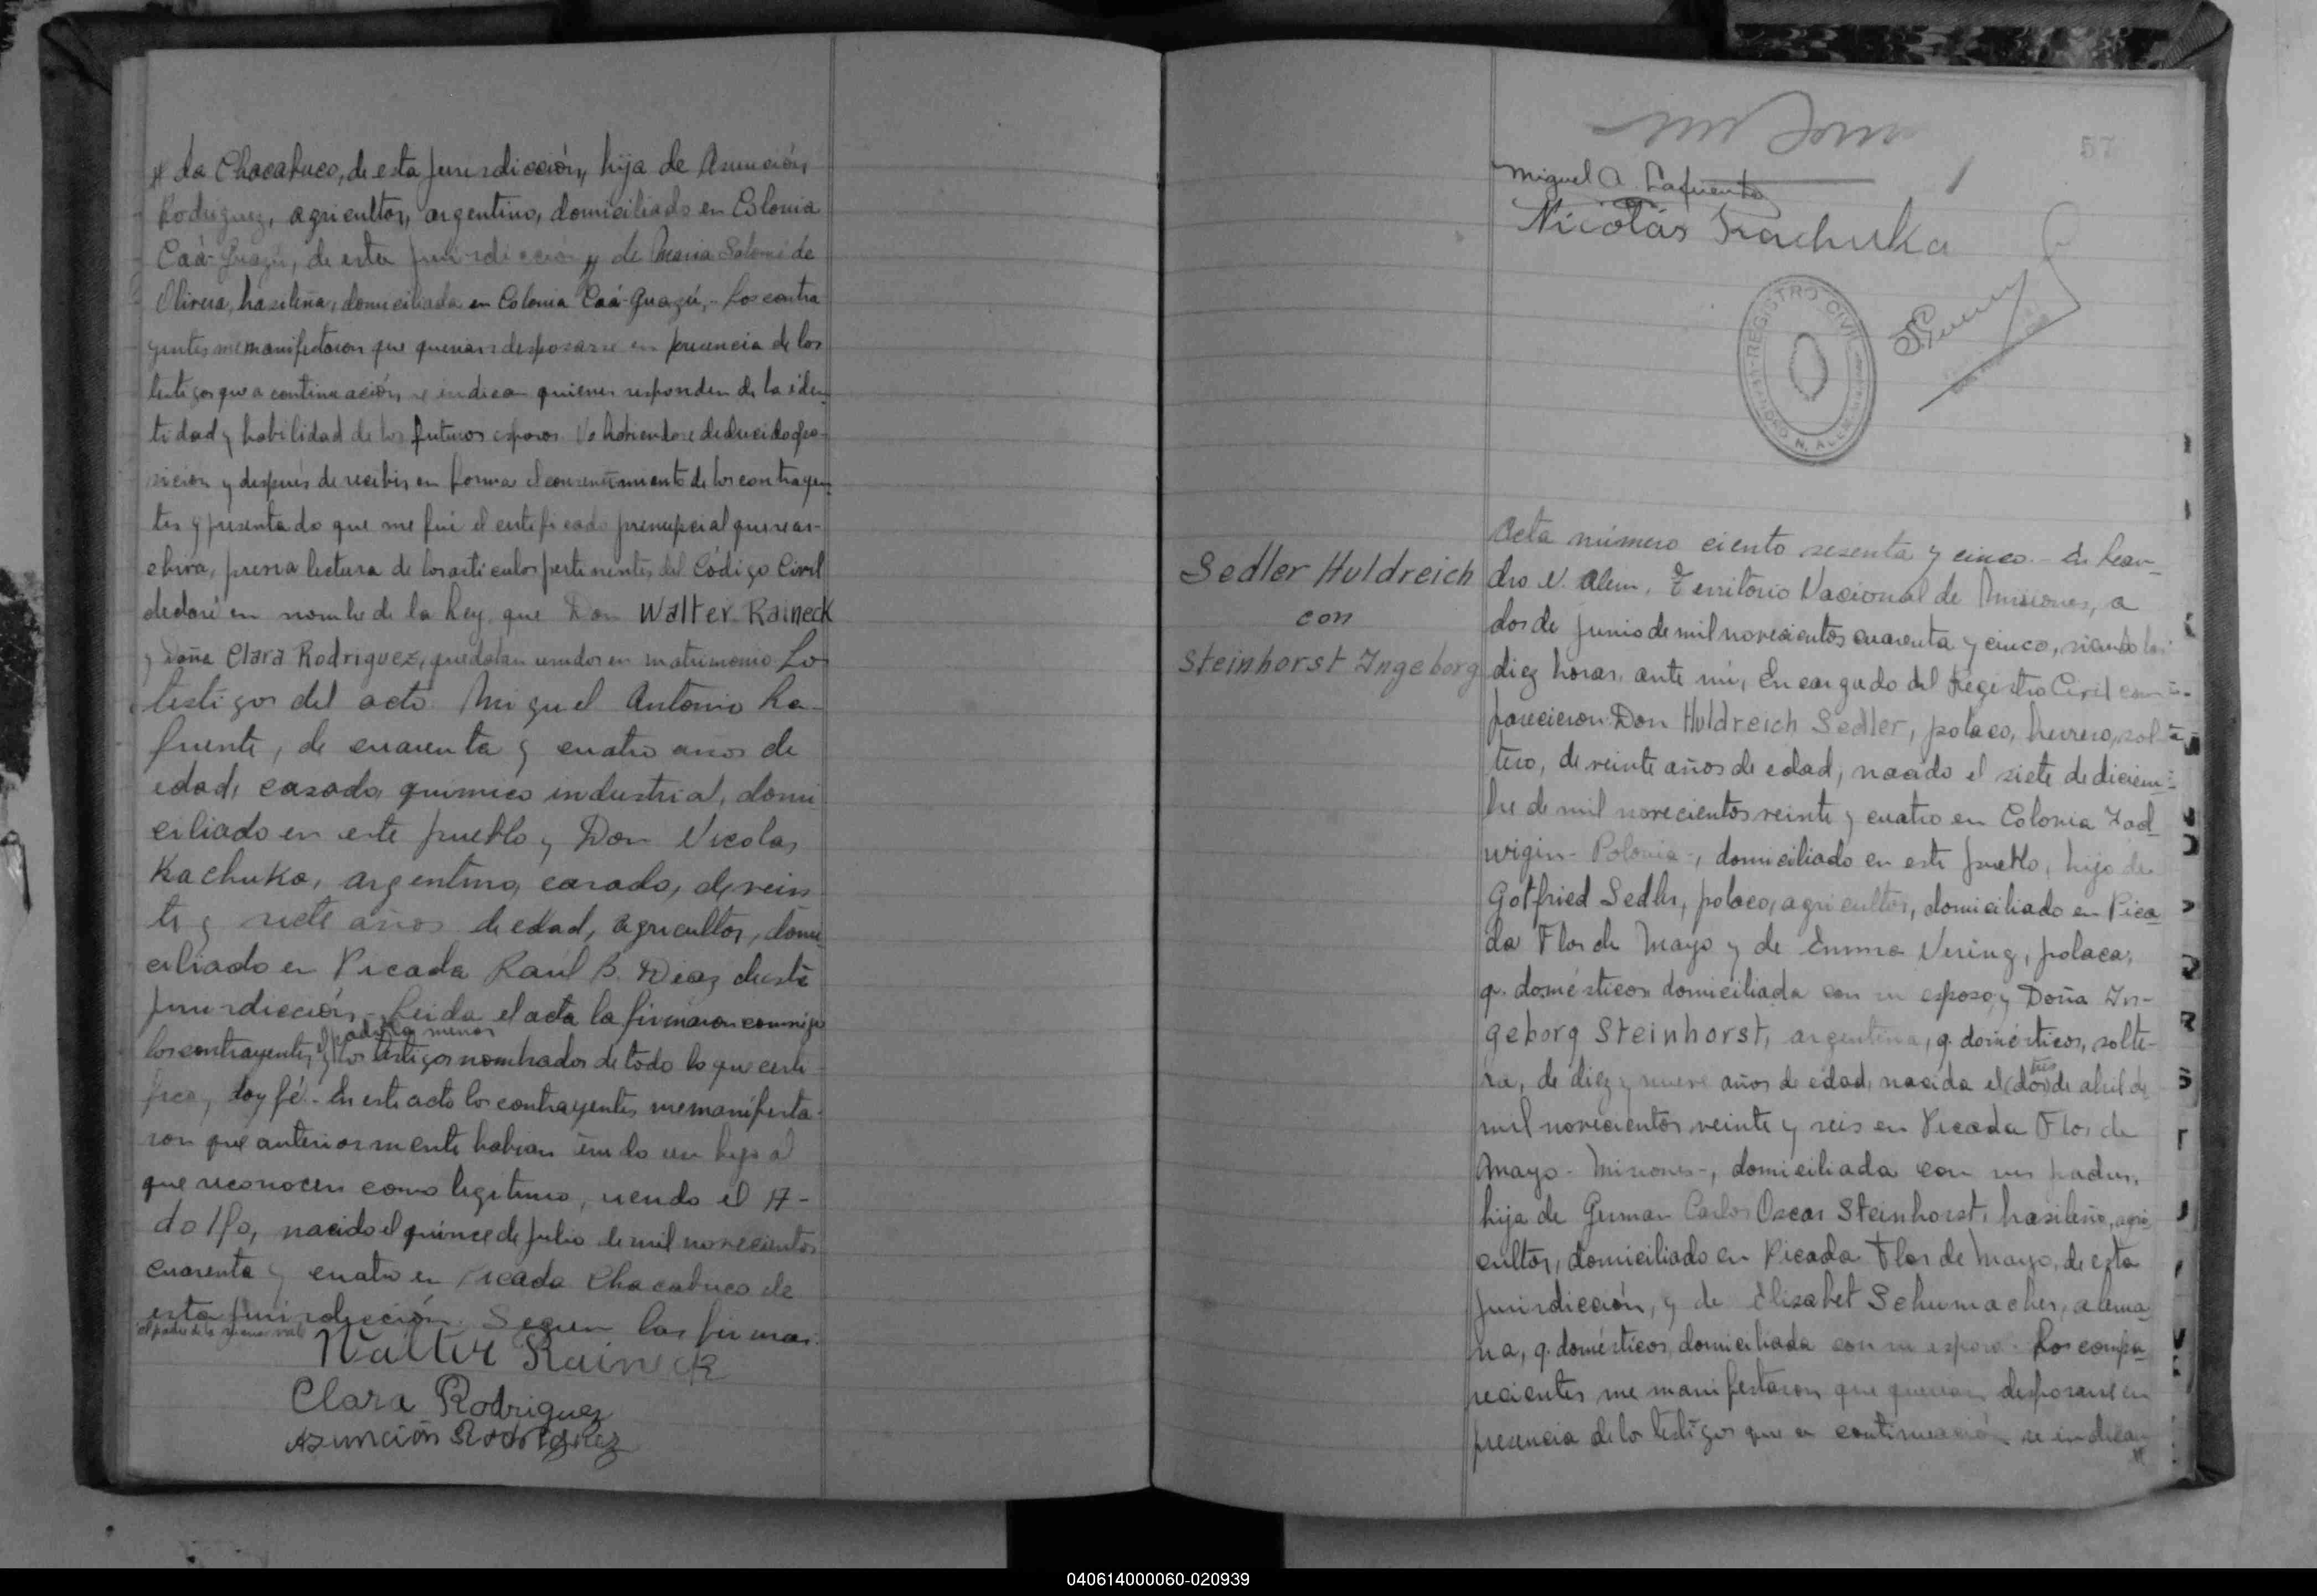 da Chacabuco, de esta jurisdicción, hija de Asunción
Rodriguez, agricultor, argentino, domiciliado en Colonia
Caá-Guazú, de esta jurisdicción y de Maria Salomé de
Olivera, brasileña, domiciliada en Colonia Caá-Guazú,- Los contra
yentes me manifestaron que querian desposarse en presencia de los
testigos que a continuación se indican quienes responden de la iden
tidad y habilidad de los futuros esposos. No habiendose deducido opo-
sición y después de recibir en forma el consentimiento de los contrayen
tes y presentado que me fué el certificado prenupcial que se ar-
chiva, previa lectura de los articulos pertinentes del Código Civil
declaré en nombre de la Ley, que Don Walter Raineck
y Doña Clara Rodriguez, quedaban unidos en matrimonio. Lo
testigos del acto Miguel Antonio La-
fuente, de cuarenta y cuatro años de
edad, casado, quimico industrial, domi
ciliado en este pueblo y Don Nicolas
Kachuka, argentino, casado, de vein
te y siete años de edad, agricultor, domi
ciliado en Picada Raúl B. Diaz de esta
jurisdicción.- Leida el acta la firmaron conmigo
el padre de la menor
los contrayentes, y los testigos nombrados de todo lo que certi
fico, doy fé.- En este acto los contrayentes me manifesta-
ron que anteriormente habian tenido un hijo al
que reconocen como legitimo, siendo el A-
dolfo, nacido el quince de Julio de mil novecientos
cuarenta y cuatro en Picada Chacabuco de
esta jurisdicción. Siguen las firmas.
el padre de la menor vale
Walter Raineck
Clara Rodriguez
Asunción Rodriguez
57
Miguel A. Lafuente
Nicolás Kachuka
REGISTRO CIVIL
LEANDRO N. ALEM
Sedler Huldreich
con
Steinhorst Ingeborg
Acta número ciento sesenta y cinco.- En Lean-
dro N. Alem, Territorio Nacional de Misiones, a
dos de Junio de mil novecientos cuarenta y cinco, siendo las
diez horas, ante mi, Encargado del Registro Civil com-
parecieron Don Huldreich Sedler, polaco, herrero, sol-
tero, de veinte años de edad, nacido el siete de diciem-
bre de mil novecientos veinte y cuatro en Colonia Jad
wigin- Polonia-, domiciliado en este pueblo, hijo de
Gotfried Sedler, polaco, agricultor, domiciliado en Pica
da Flor de Mayo y de Emma Nering, polaca,
q. domésticos domiciliada con su esposo y Doña In-
geborg Steinhorst, argentina, q. domésticos, solte-
tres
ra, de diez y nueve años de edad, nacida el (dos) de abril de
mil novecientos veinte y seis en Picada Flor de
Mayo- Misiones-, domiciliada con sus padres,
hija de German Carlos Oscar Steinhorst, brasileño, agri
cultor, domiciliado en Picada Flor de Mayo, de esta
jurisdicción, y de Elisabet Schumacher, alema
na, q. domésticos, domiciliada con su esposo.- Los compa
recientes me manifestaron que querian desposarse en
presencia de lo testigos que a continuación se indican
040614000060-020939